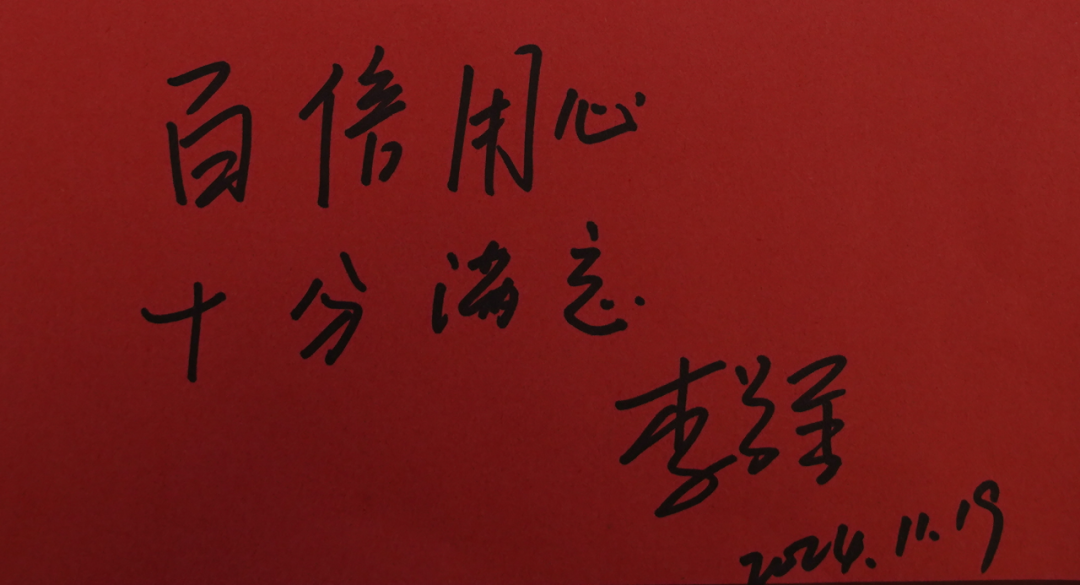 百倍用心
十分满意
李
2024.11.19